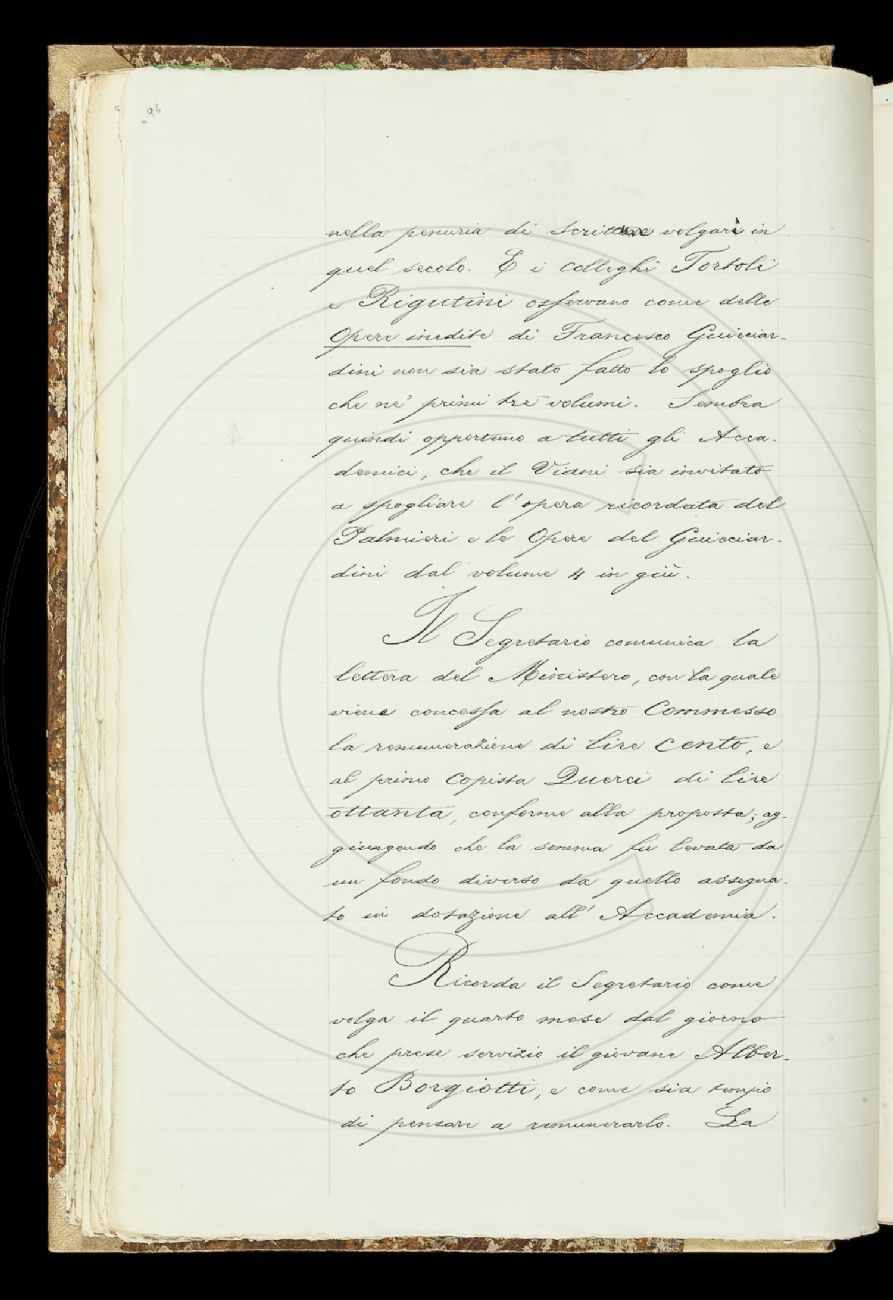 96
nella penuria di scritture volgari in
quel secolo. E i colleghi Tortoli
e Rigutini osservano come delle
Opere inedite di Francesco Guicciar-
dini non sia stato fatto lo spoglio
che ne' primi tre volumi. Sembra
quindi opportuno a tutti gli Acca-
demici, che il Viani sia invitato
a spogliare l'opera ricordata del
Palmieri e le Opere del Guicciar-
dini dal volume 4 in giù.
Il Segretario comunica la
lettera del Ministero, con la quale
viene concessa al nostro Commesso
la remunerazione di lire cento, e
al primo copista Querci di lire
ottanta, conforme alla proposta; ag-
giungendo che la somma fu levata da
un fondo diverso da quello assegna-
to in dotazione all'Accademia.
Ricorda il Segretario come
volga il quarto mese dal giorno
che prese servizio il giovane Alber-
to Borgiotti, e come sia tempo
di pensare a remunerarlo. La